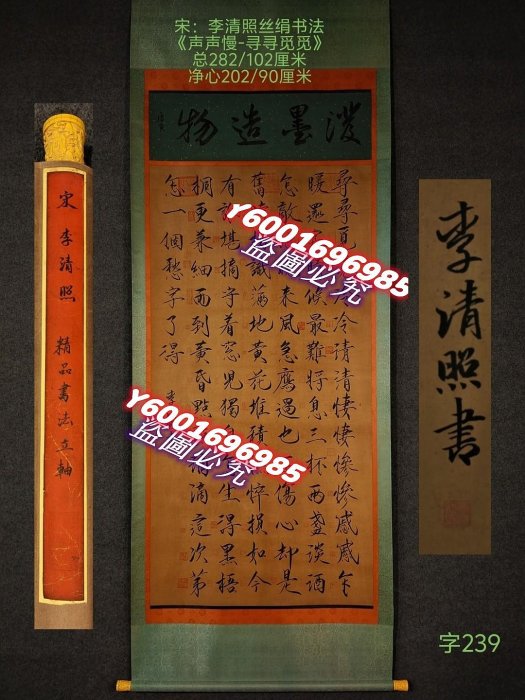 宋：李清照丝绢书法
《声声慢-寻寻觅觅》
总282/102厘米
净心202/90厘米
宋 李清照 精品書法立軸
潑墨造物
尋尋覓冷清清悽悽慘慘慼慼乍
暖還候最難將息三杯兩盞淡酒
怎敵來風急鴈過也傷心却是
舊識滿地黃花堆積悴損如今
有誰堪摘守着窓兒獨生得黑梧
桐更兼細雨到黃昏點滴這次第
怎一個愁字了得
李清照書
Y6001696985
盜圖必究
Y6001696985
盜圖必究
字239